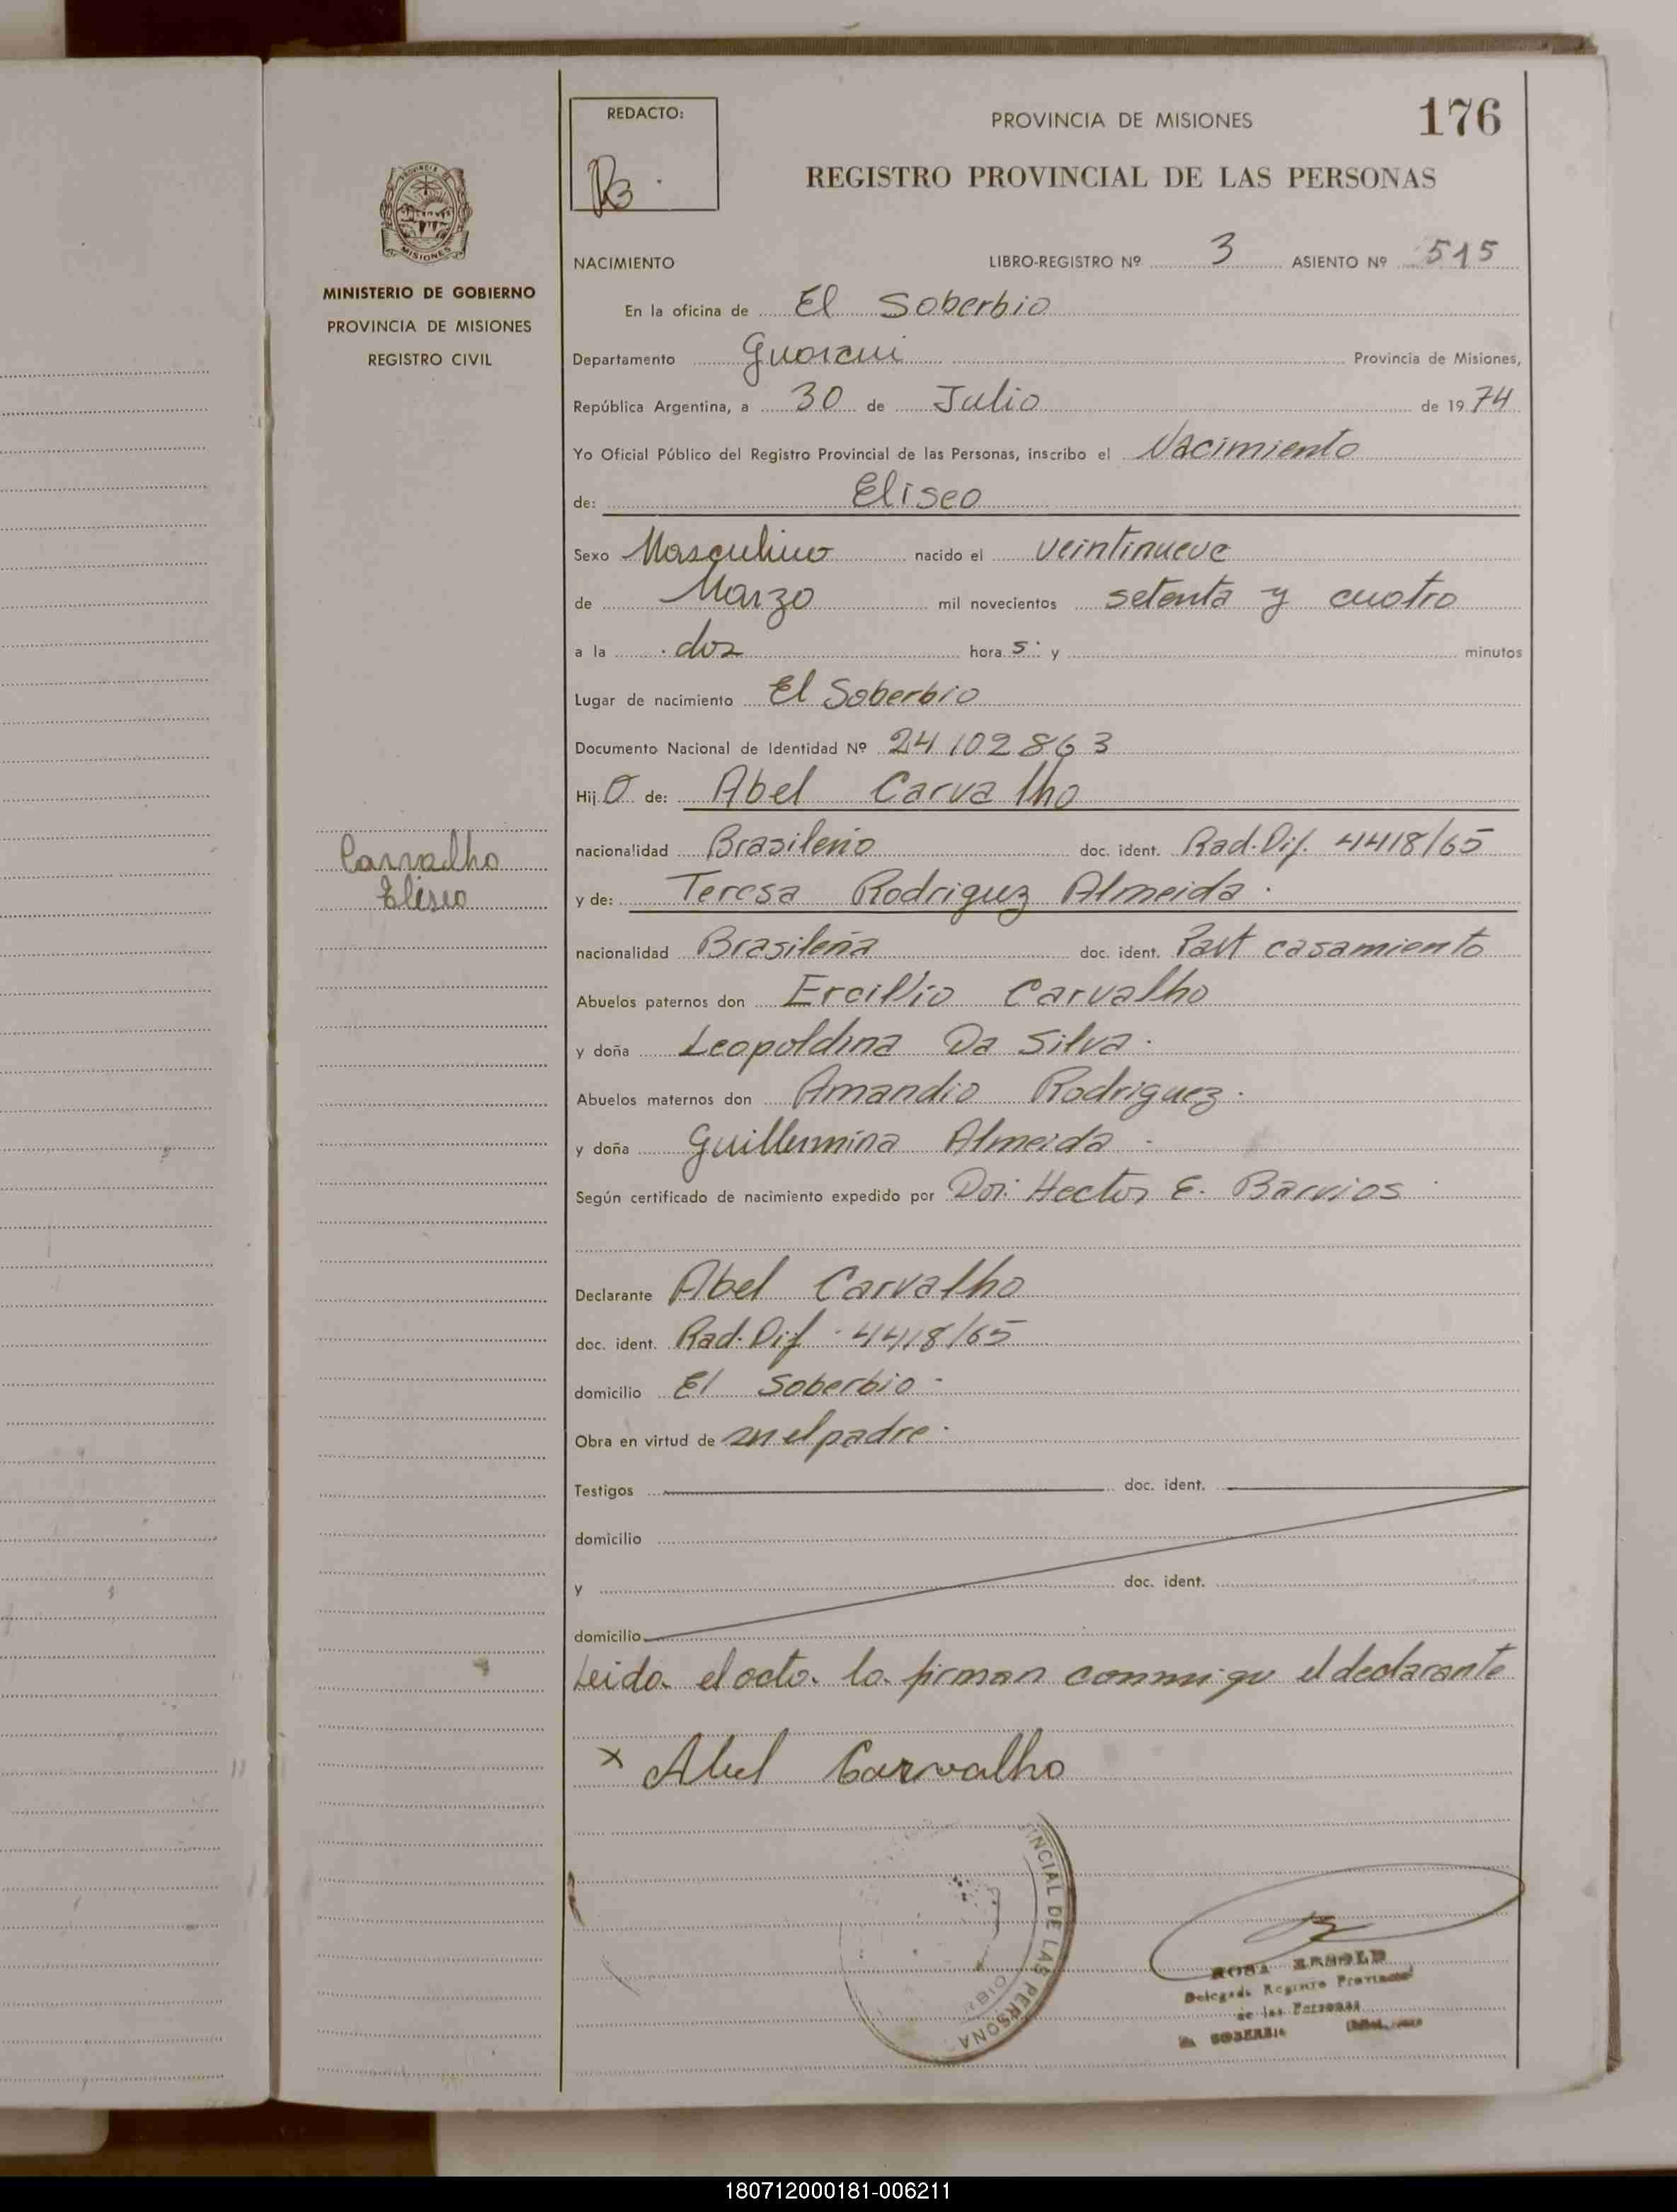 REDACTO:
PROVINCIA DE MISIONES
176
REGISTRO PROVINCIAL DE LAS PERSONAS
PROVINCIA DE
MISIONES
MINISTERIO DE GOBIERNO
PROVINCIA DE MISIONES
REGISTRO CIVIL
NACIMIENTO LIBRO-REGISTRO Nº 3 ASIENTO Nº 515
En la oficina de El Soberbio
Departamento Guarani Provincia de Misiones,
República Argentina, a 30 de Julio de 1974
Yo Oficial Público del Registro Provincial de las Personas, inscribo el Nacimiento
de: Eliseo
Sexo Masculino nacido el veintinueve
de Marzo mil novecientos setenta y cuatro
a la dos hora s: y minutos
Lugar de nacimiento El Soberbio
Documento Nacional de Identidad Nº 24102863
Hij o de: Abel Carvalho
nacionalidad Brasileño doc. ident. Rad. Dif. 4418/65
Carvalho
Eliseo
y de: Teresa Rodriguez Almeida.
nacionalidad Brasileña doc. ident. Part casamiento
Abuelos paternos don Ercillio Carvalho
y doña Leopoldina Da Silva.
Abuelos maternos don Amandio Rodriguez.
y doña Guillermina Almeida.
Según certificado de nacimiento expedido por Dor. Hector E. Barrios
Declarante Abel Carvalho
doc. ident. Rad. Dif. 4418/65
domicilio El Soberbio -
Obra en virtud de en el padre.
Testigos doc. ident.
domicilio
y doc. ident.
domicilio
Leida el acta la firman conmigo el declarante
x Abel Carvalho
INCIAL DE LAS PERSONA
RBIO
ROSA ARNOLD
Delegada Registro Provincial
de las Personas
EL SOBERBIO
180712000181-006211